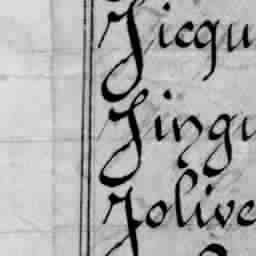 Jicqu
Jingu
Jolive